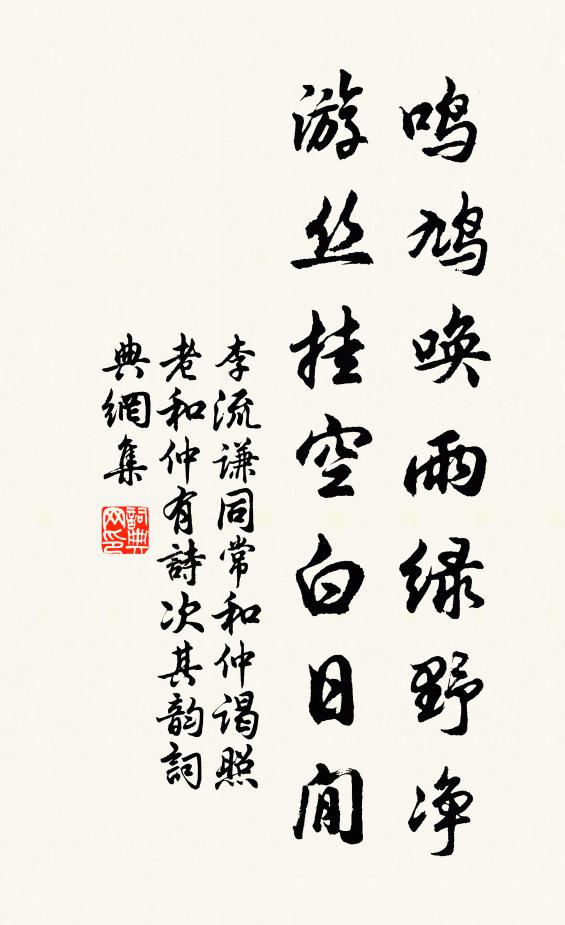 鸣鸠唤雨绿野净
游丝挂空白日闲
李流謙同常和仲謁照
老和仲有詩次其韵詞
典網集
詞典
网印